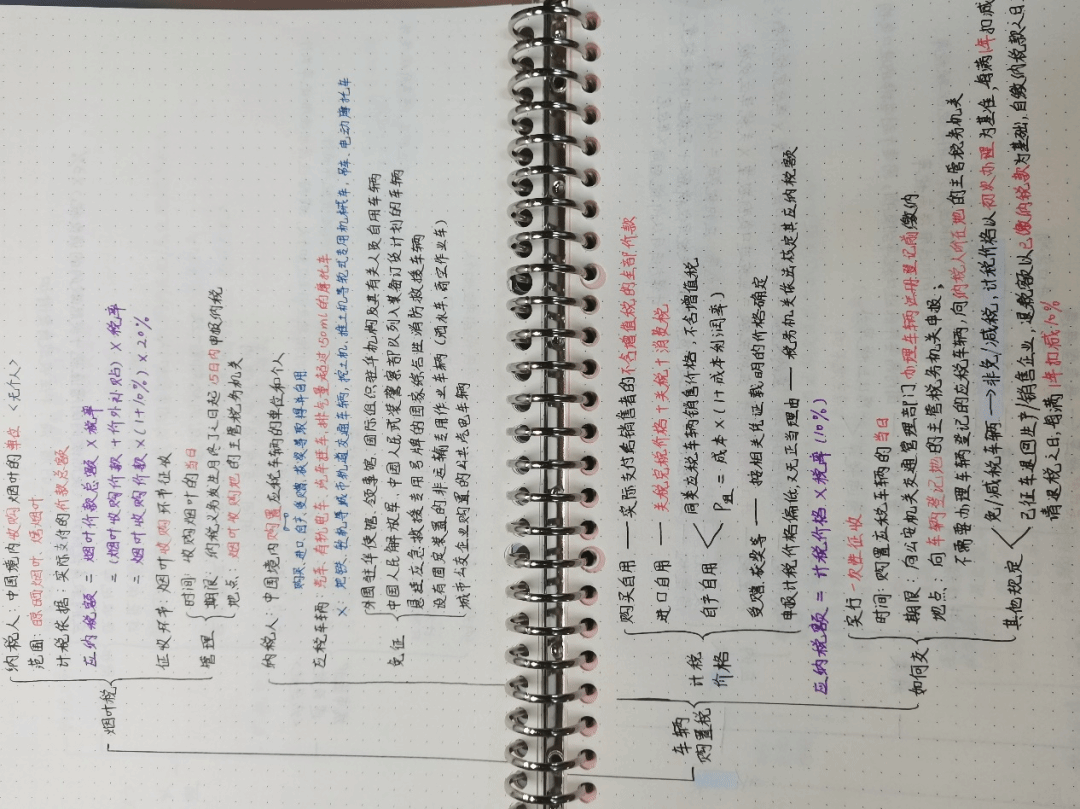 烟叶税
纳税人：中国境内收购烟叶的单位 <无个人>
范围：晾晒烟叶、烤烟叶
计税依据：实际支付的价款总额
应纳税额 = 烟叶价款总额 × 税率
= (烟叶收购价款 + 价外补贴) × 税率
= 烟叶收购价款 × (1+10%) × 20%
征收环节：烟叶收购环节征收
管理
时间：收购烟叶的当日
期限：纳税义务发生月终了之日起15日内申报纳税
地点：烟叶收购地的主管税务机关
车辆购置税
纳税人：中国境内购置应税车辆的单位和个人
购买、进口、自产、受赠、获奖等取得并自用
应税车辆：汽车、有轨电车、汽车挂车、排气量超过150ml的摩托车
×：地铁、轻轨等城市轨道交通车辆，挖土机、推土机等轮式专用机械车，吊车，电动摩托车
免征
外国驻华使馆、领事馆、国际组织驻华机构及其有关人员自用车辆
中国人民解放军、中国人民武装警察部队列入装备订货计划的车辆
悬挂应急救援专用号牌的国家综合性消防救援车辆
设有固定装置的非运输专用作业车辆（洒水车，高空作业车）
城市公交企业购置的公共汽电车辆
计税价格
购买自用 —— 实际支付给销售者的不含增值税的全部价款
进口自用 —— 关税完税价格 + 关税 + 消费税
自产自用
同类应税车辆销售价格，不含增值税
P组 = 成本 × (1+成本利润率)
受赠获奖等 —— 按相关凭证载明的价格确定
申报计税价格偏低，又无正当理由 —— 税务机关依法核定其应纳税额
应纳税额 = 计税价格 × 税率 (10%)
如何交
实行一次性征收
时间：购置应税车辆的当日
期限：向公安机关交通管理部门办理车辆注册登记前缴纳
地点：向车辆登记地的主管税务机关申报；
不需要办理车辆登记的应税车辆，向纳税人所在地的主管税务机关
其他规定
免/减税车辆 → 非免/减税，计税价格以初次办理为基准，每满1年扣减
已征车退回生产销售企业，退税额以已缴纳税款为基础，自缴纳税款之日
请退税之日，每满1年扣减10%